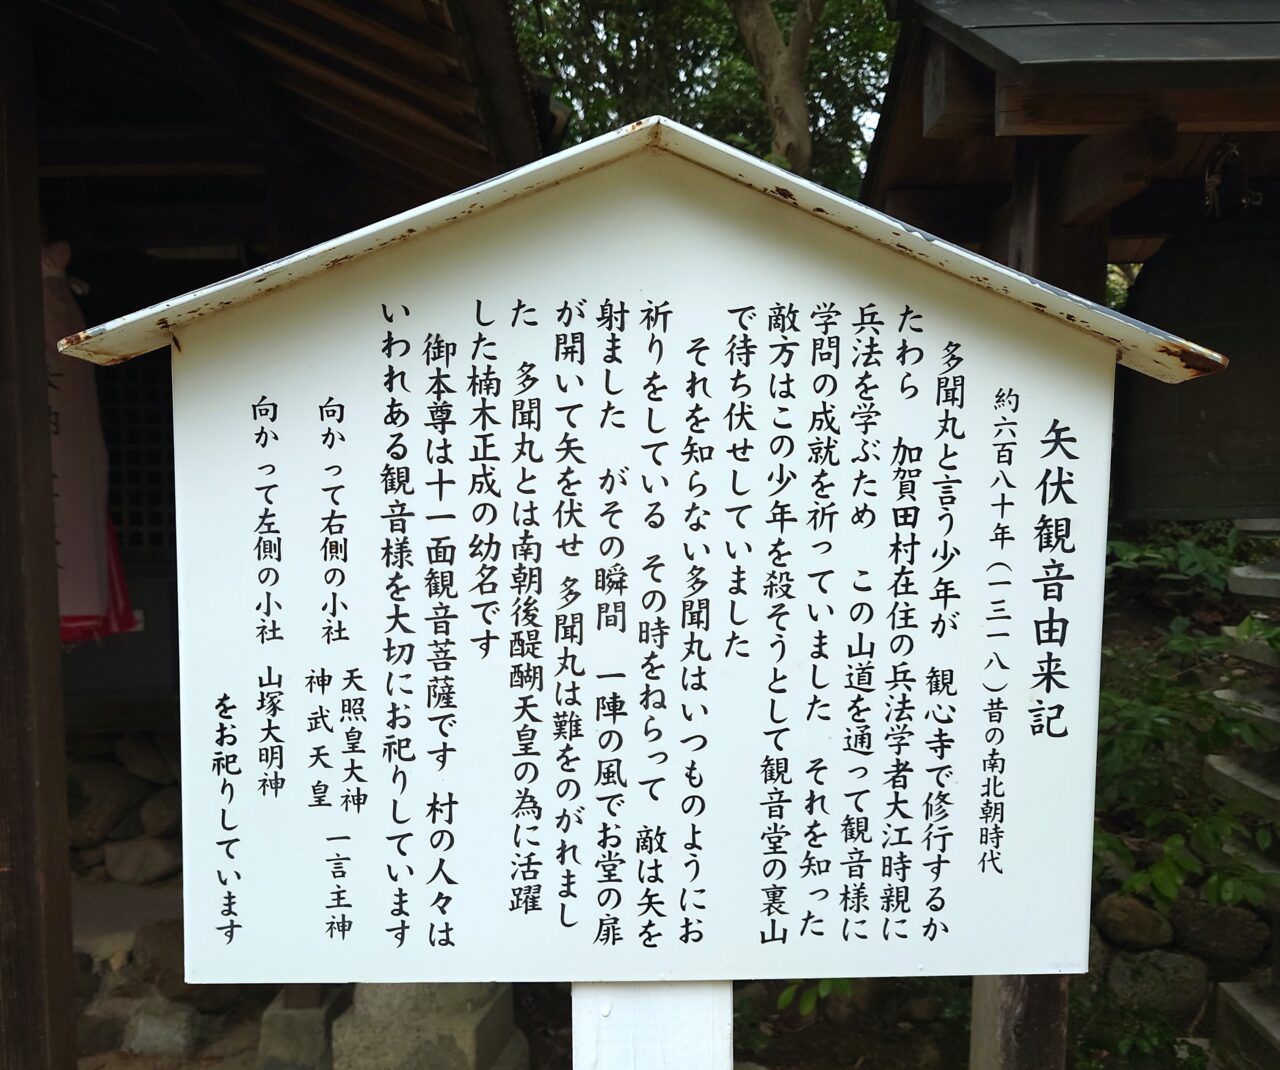 矢伏観音由来記
約六百八十年(一三一八)昔の南北朝時代
多聞丸と言う少年が 観心寺で修行するか
たわら 加賀田村在住の兵法学者大江時親に
兵法を学ぶため この山道を通って観音様に
学問の成就を祈っていました それを知った
敵方はこの少年を殺そうとして観音堂の裏山
で待ち伏せしていました
それを知らない多聞丸はいつものようにお
祈りをしている その時をねらって 敵は矢を
射ました がその瞬間 一陣の風でお堂の扉
が開いて矢を伏せ 多聞丸は難をのがれまし
た 多聞丸とは南朝後醍醐天皇の為に活躍
した楠木正成の幼名です
御本尊は十一面観音菩薩です 村の人々は
いわれある観音様を大切にお祀りしています
向かって右側の小社 天照皇大神 一言主神
神武天皇
向かって左側の小社 山塚大明神
をお祀りしています